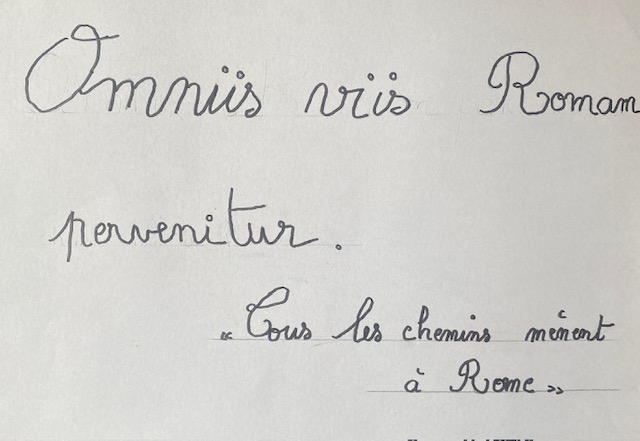 Omniis viis Romam
pervenitur.
« Tous les chemins mènent
à Rome »